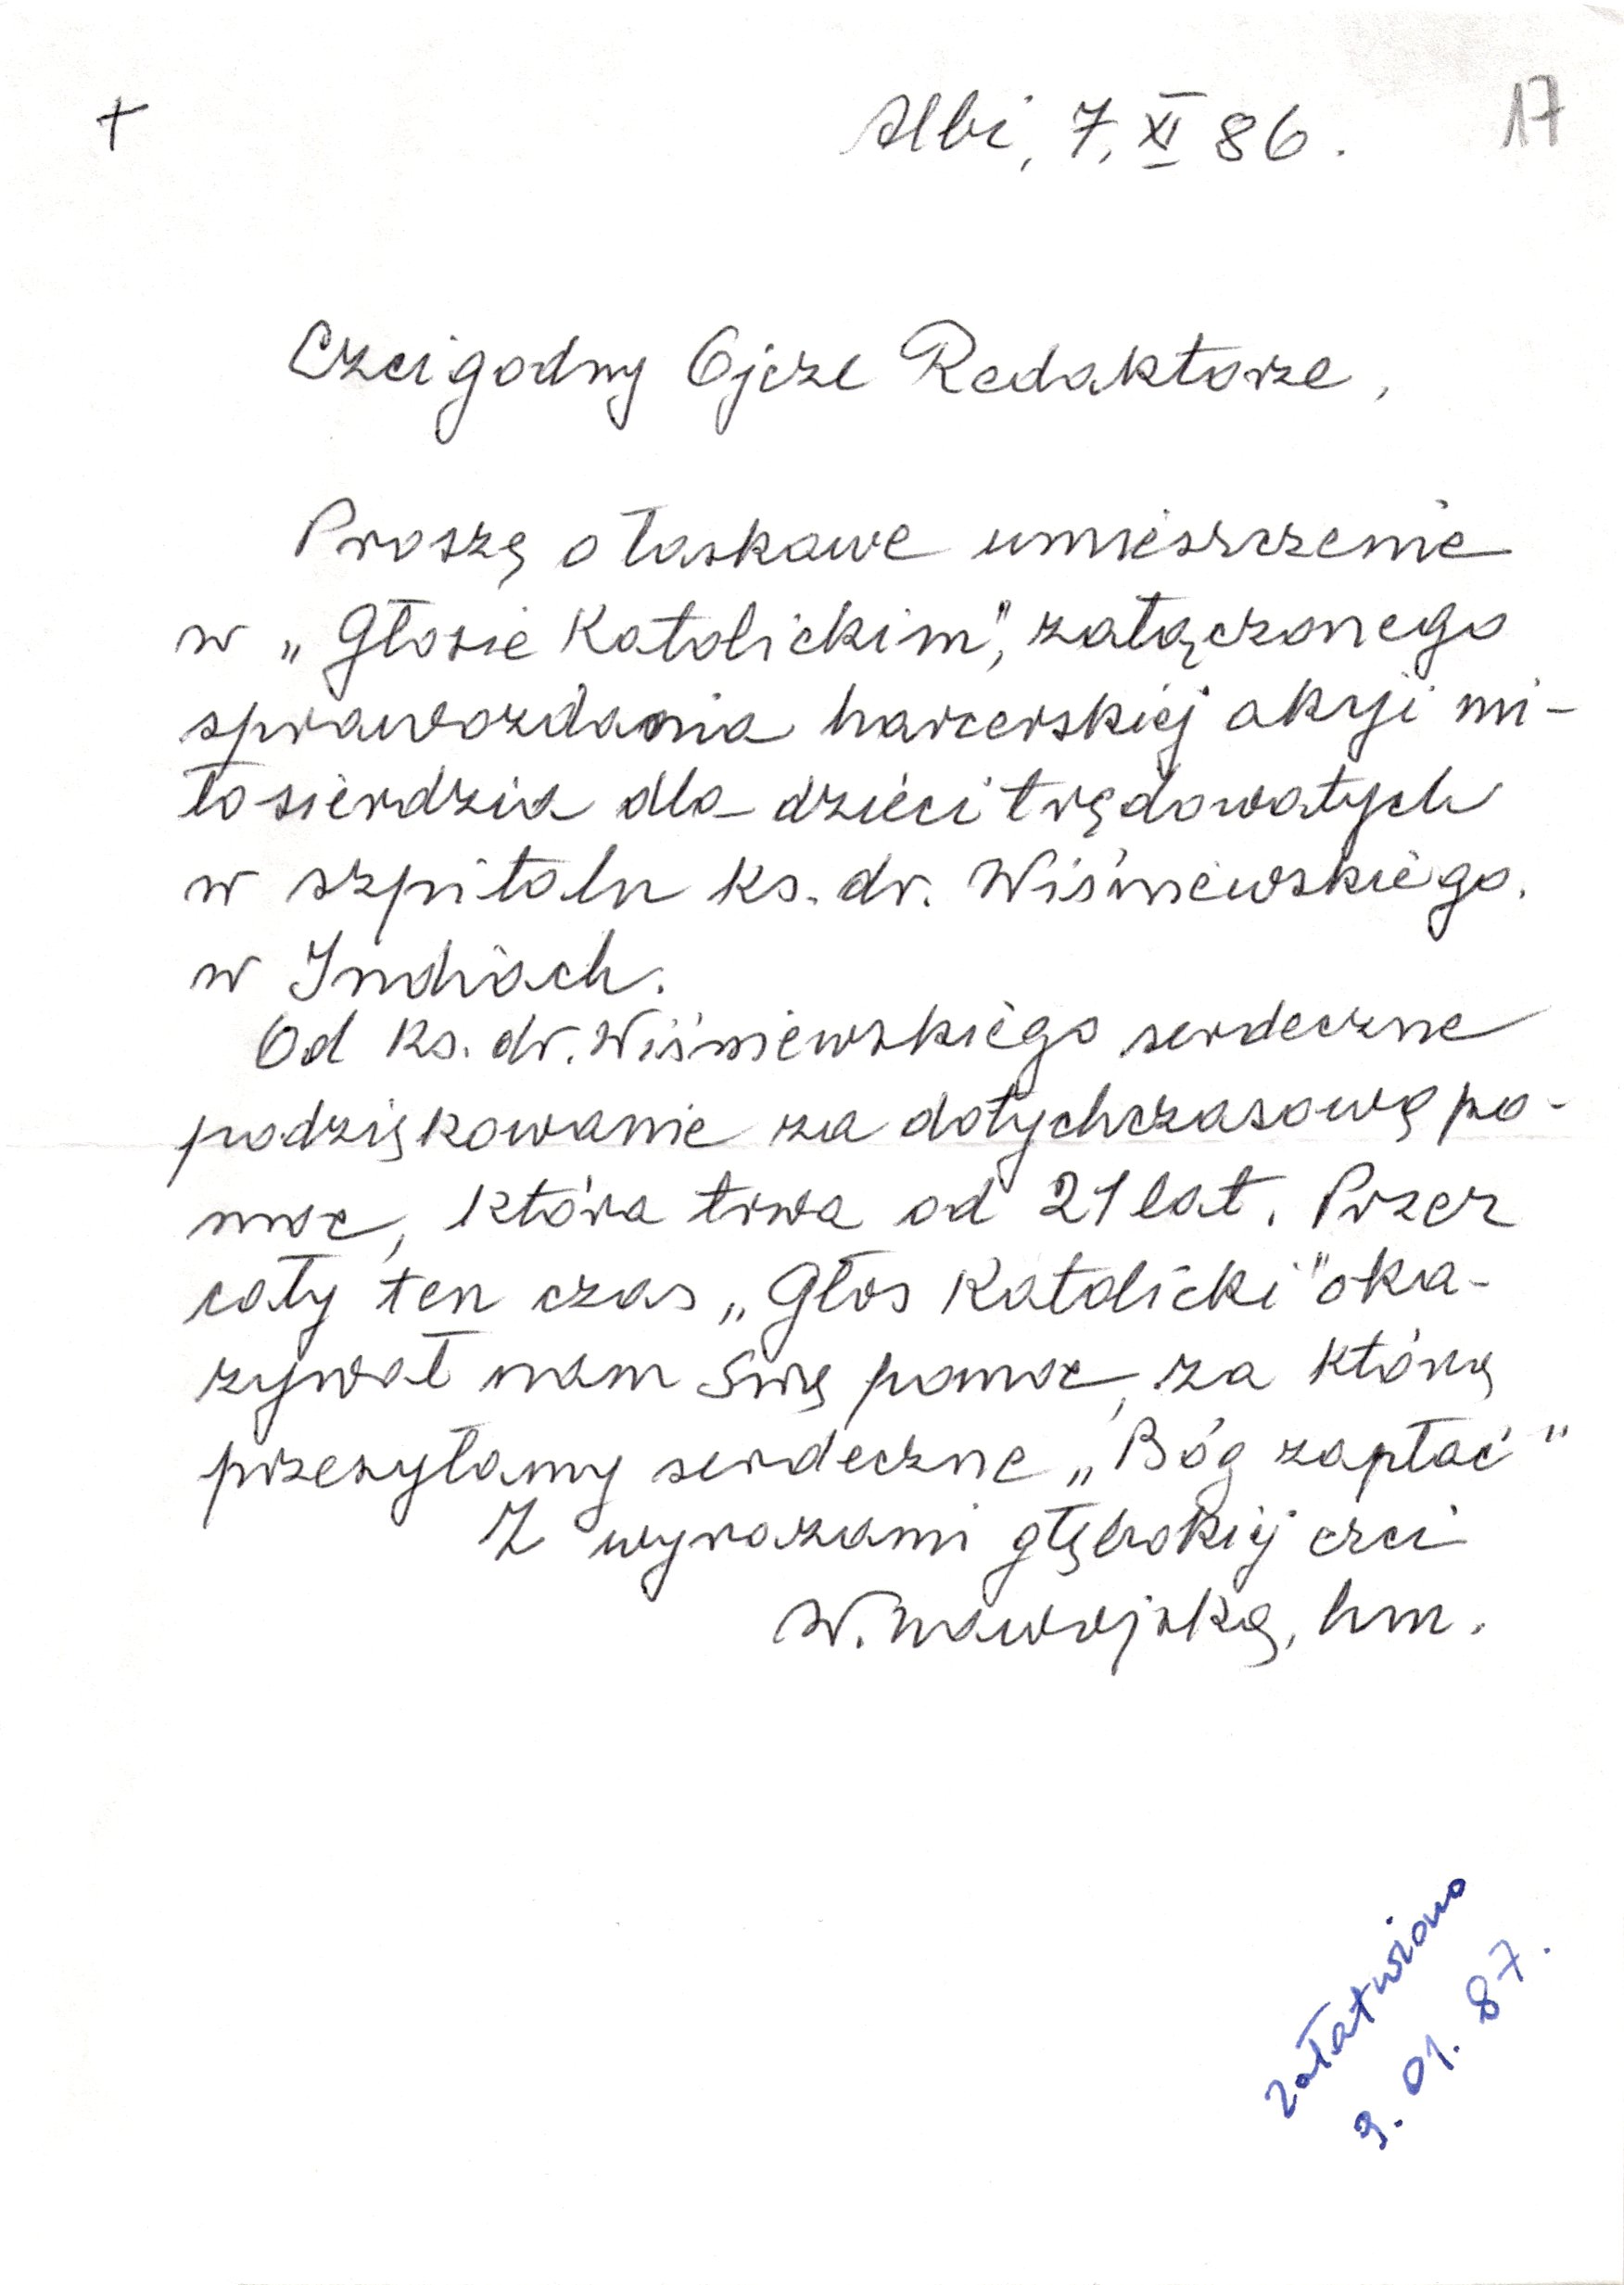 +
Albi, 7. XI 86.
17
Czcigodny Ojcze Redaktorze,
Proszę o łaskawe umieszczenie
w „Głosie Katolickim", załączonego
sprawozdania harcerskiej akcji mi-
łosierdzia dla dzieci trędowatych
w szpitalu ks. dr. Wiśniewskiego.
w Indiach.
Od ks. dr. Wiśniewskiego serdeczne
podziękowanie za dotychczasową po-
moc, która trwa od 21 lat. Przez
cały ten czas „Głos Katolicki" oka-
zywał nam Swą pomoc, za którą
przesyłamy serdeczne „Bóg zapłać"
Z wyrazami głębokiej czci
W. , hm.
załatwiono
9. 01. 87.